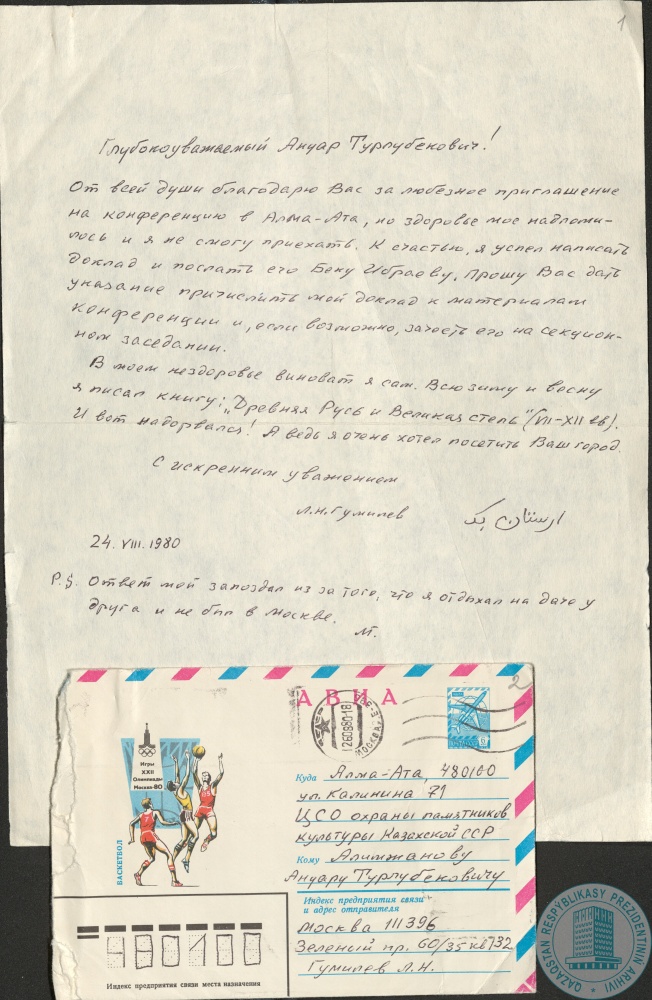 1
Глубокоуважаемый Ануар Турлубекович!
От всей души благодарю Вас за любезное приглашение
на конференцию в Алма-Ата, но здоровье мое надломи-
лось и я не смогу приехать. К счастью, я успел написать
доклад и послать его Беку Ибраеву. Прошу Вас дать
указание причислить мой доклад к материалам
конференции и, если возможно, зачесть его на секцион-
ном заседании.
В моем нездоровье виноват я сам. Всю зиму и весну
я писал книгу: „Древняя Русь и Великая степь" (VII-XII вв).
И вот надорвался! А ведь я очень хотел посетить Ваш город.
С искренним уважением
Л.Н. Гумилев ارستان بک
24. VIII. 1980
P.S. Ответ мой запоздал из за того, что я отдыхал на даче у
друга и не был в Москве.
2
АВИА
Игры
XXII
Олимпиады
Москва-80
БАСКЕТБОЛ
МОСКВА
Куда Алма-Ата, 480100
ул. Калинина 71
ЦСО охраны памятников
культуры Казахской ССР
Кому Алимжанову
Ануару Турлубековичу
Индекс предприятия связи
и адрес отправителя
Москва 111396
Зеленый пр. 60/35 кв 132
Гумилев Л.Н.
480100
Индекс предприятия связи места назначения
QAZAQSTAN RESPÝBLIKASY PREZIDENTINIŃ ARHIVI